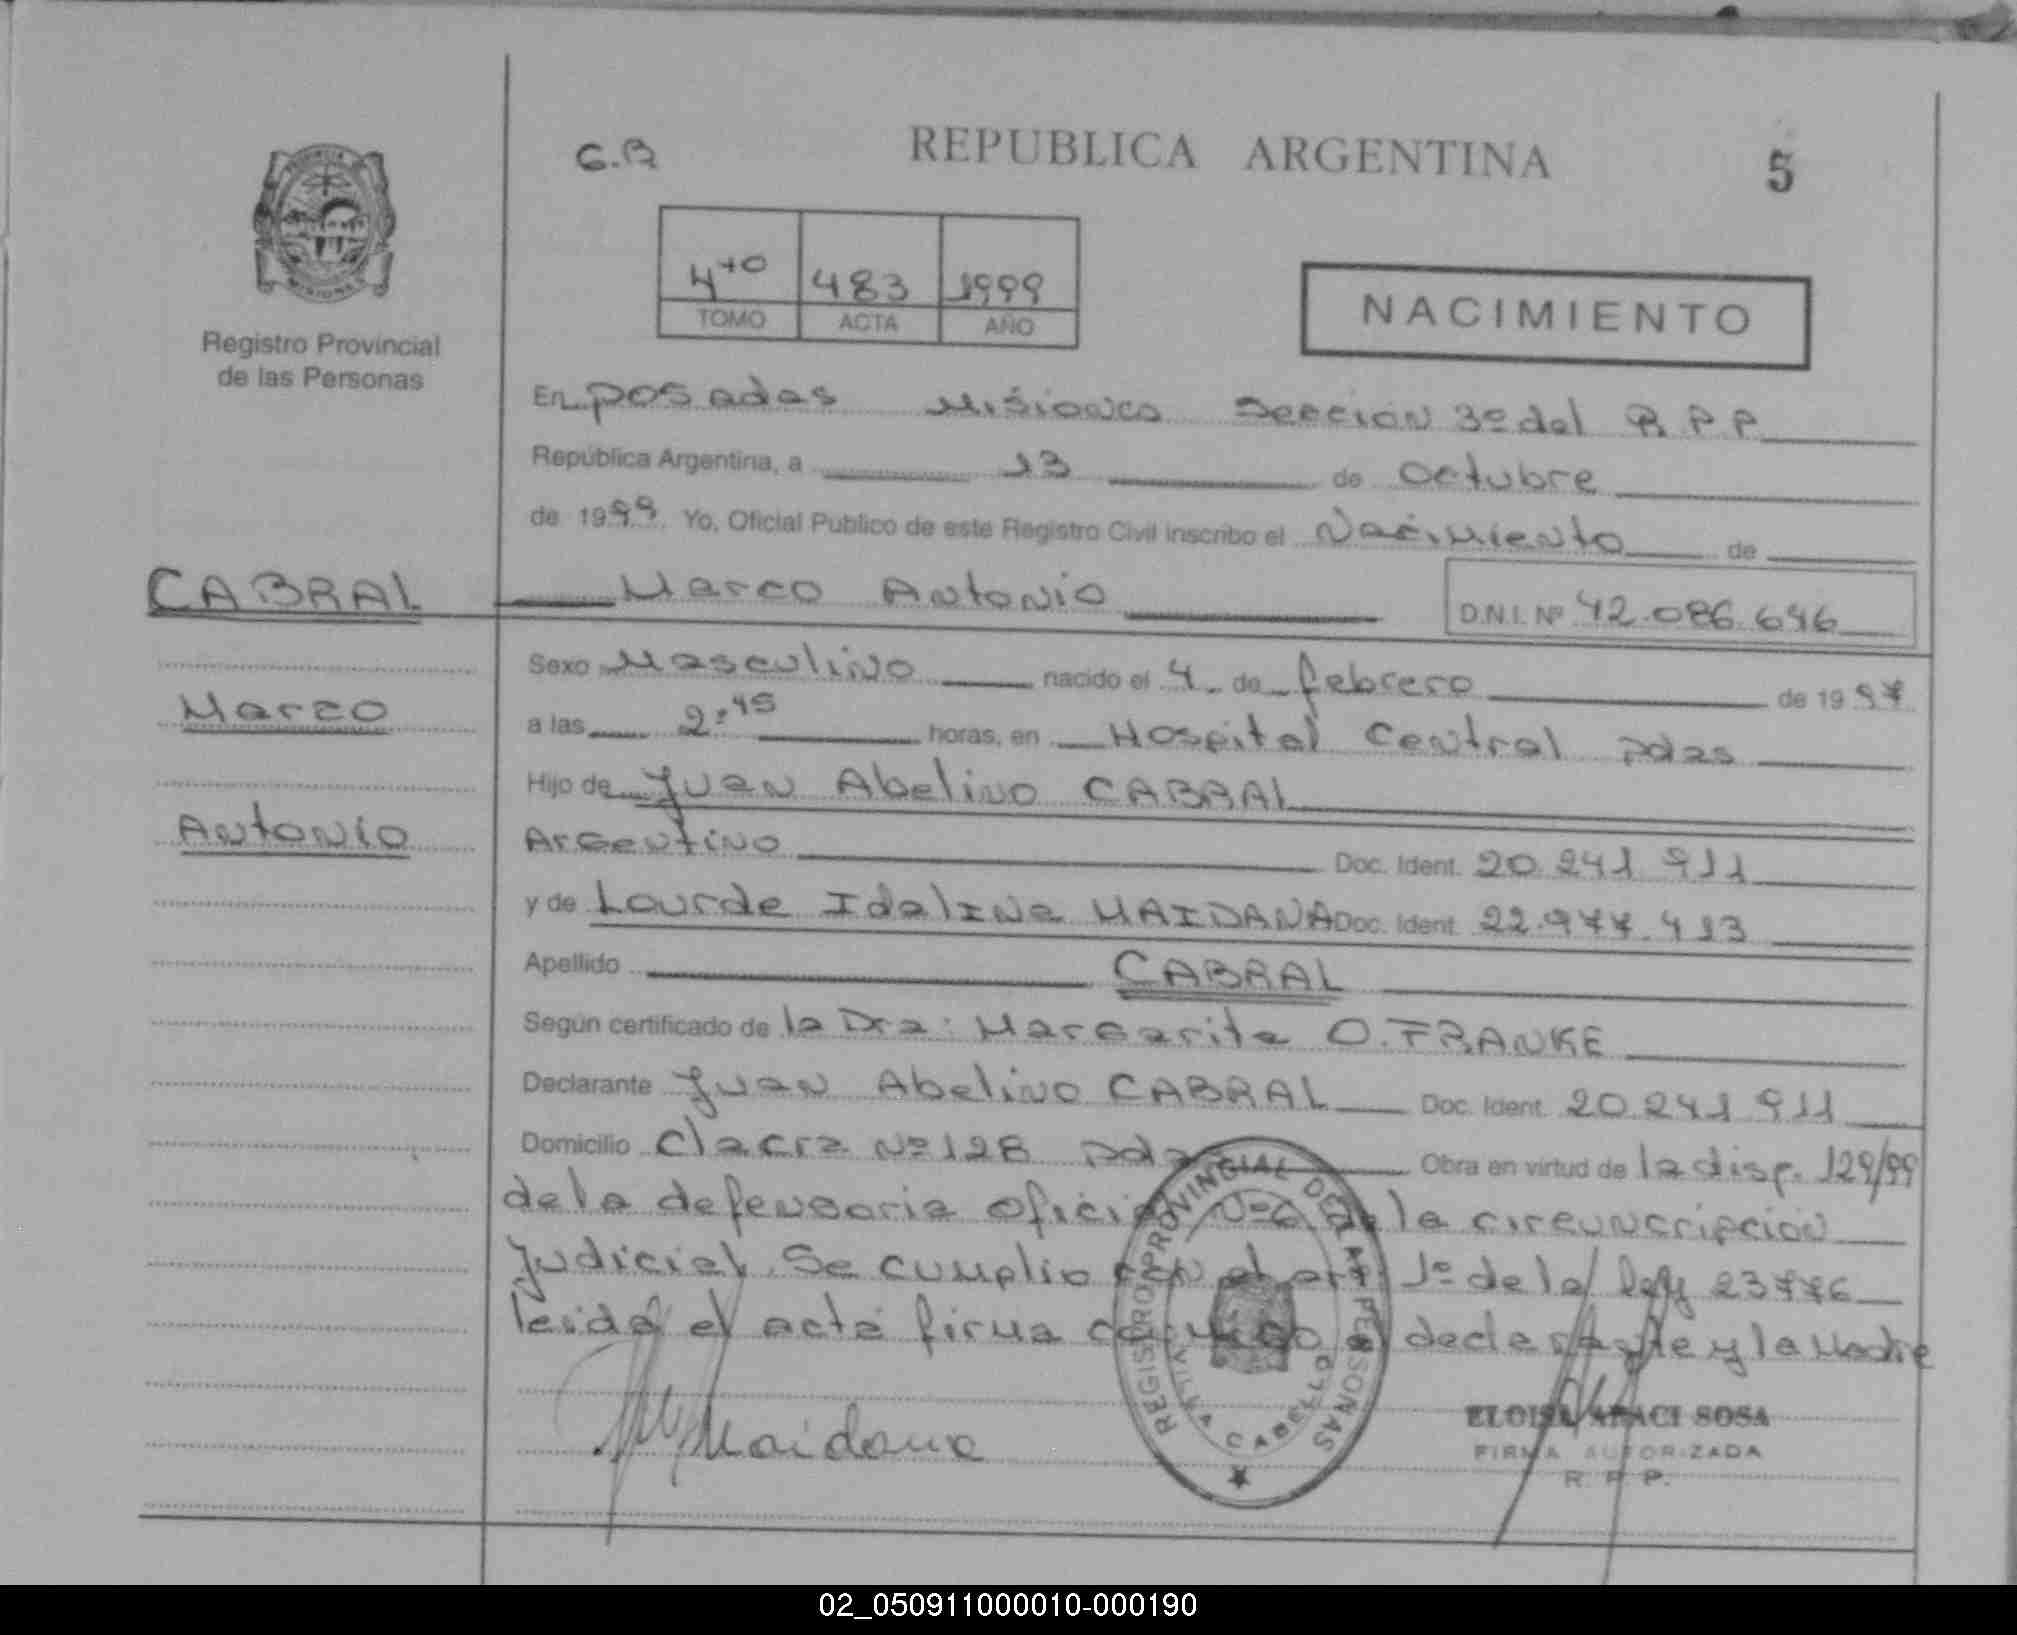 G.B
REPUBLICA ARGENTINA
5
4to 483 1999
TOMO ACTA AÑO
NACIMIENTO
MISIONES
Registro Provincial
de las Personas
En posadas Misiones Sección 3º del R.P.P
República Argentina, a 13 de octubre
de 1999 Yo, Oficial Publico de este Registro Civil inscribo el Nacimiento de
CABRAL Marco Antonio D.N.I. Nº 42.086.646
Sexo Masculino nacido el 4 de febrero de 1997
Marco
a las 2:45 horas, en Hospital Central pdas
Hijo de Juan Abelino CABRAL
Antonio
Argentino Doc. Ident. 20.241.911
y de Lourde Idalina MAIDANA Doc. Ident. 22.977.413
Apellido CABRAL
Según certificado de la Dra: Margarita O. FRANKE
Declarante Juan Abelino CABRAL Doc. Ident. 20.241.911
Domicilio Clacra Nº 128 pdas Obra en virtud de la disp. 129/99
de la defensoria oficial Nº6 de la circuncripción
Judicial. Se cumplio con el art 1º de la ley 23776
leida el acta firma conmigo el declarante y la Madre
REGISTRO PROVINCIAL DE LAS PERSONAS
VILLA CABELLO
Maidana
ELOISA ARACI SOSA
FIRMA AUTORIZADA
R. P. P.
02_050911000010-000190